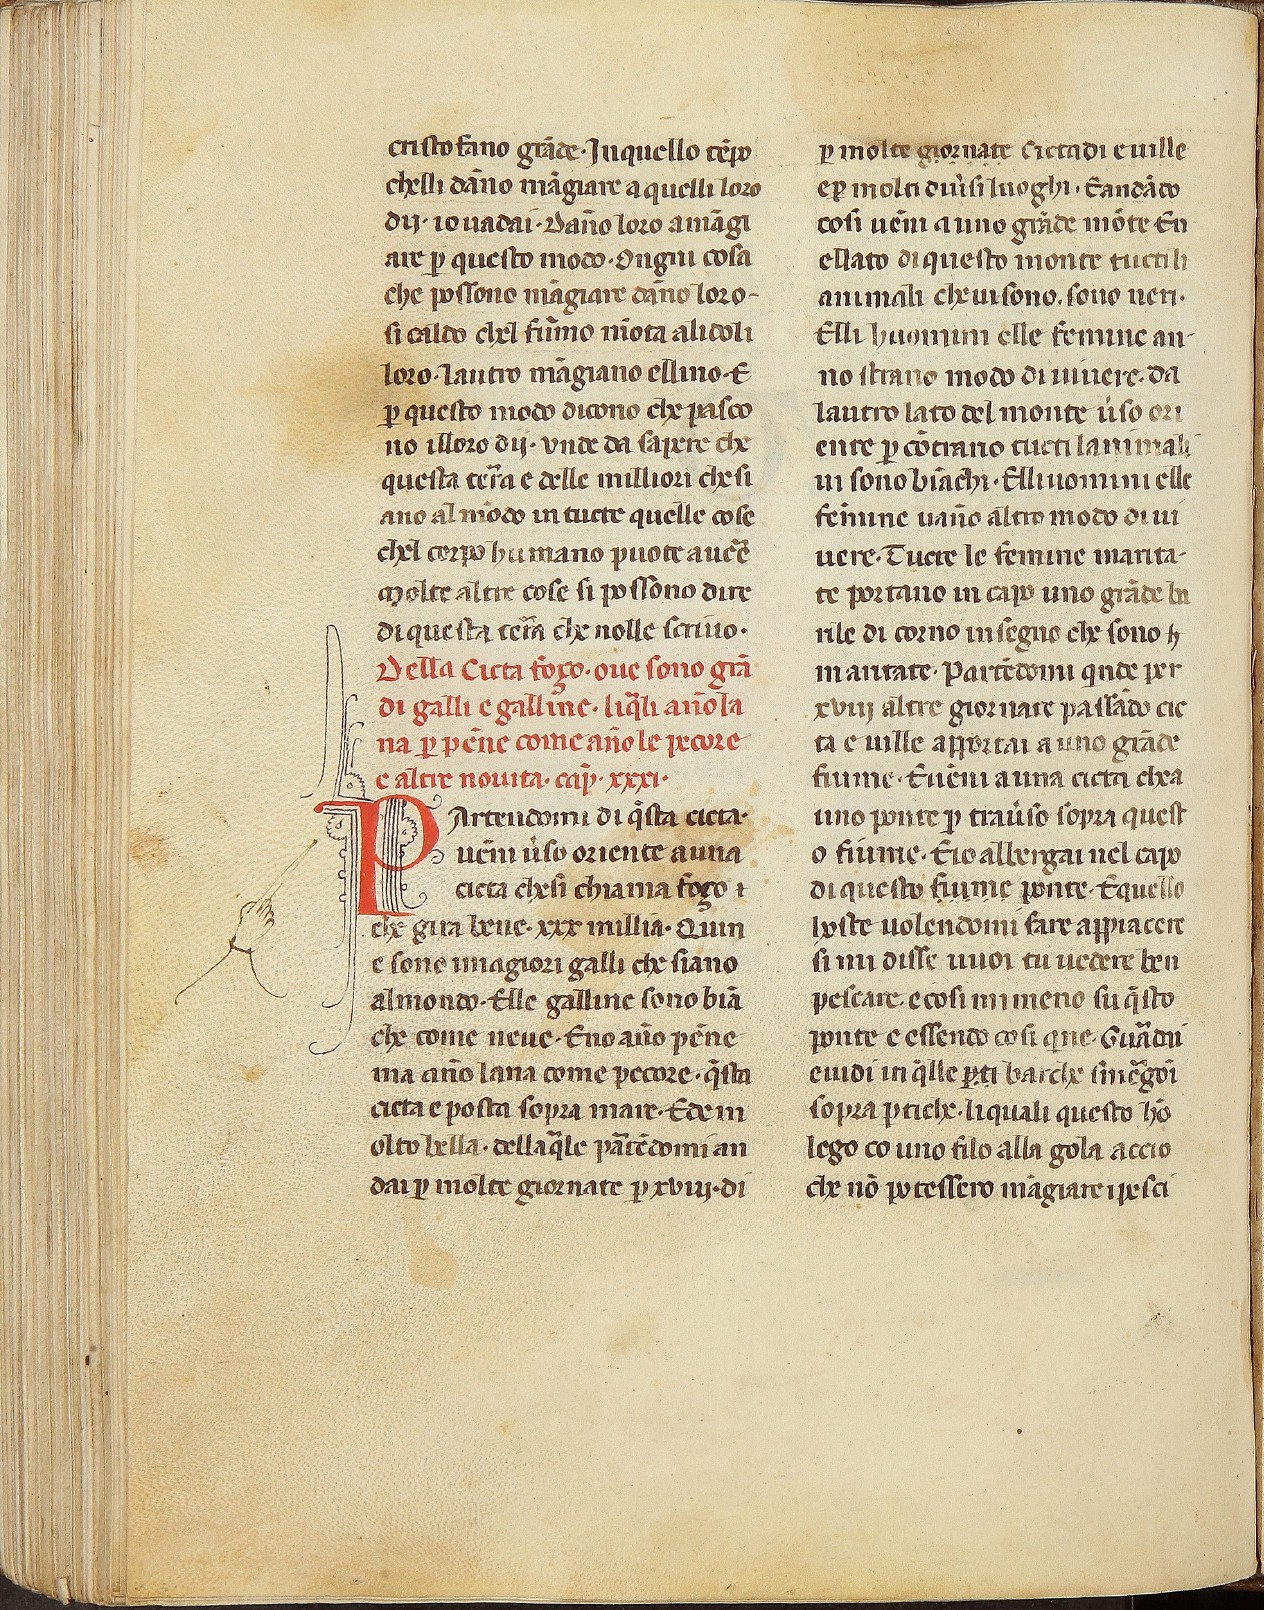 cristofano grāde·Inquello tēpo
chelli dāno māgiare aquelli loro
dij· io uadai·Dan̄o loro amāgi
are ꝑ questo modo·Ongni cosa
che possono māgiare dāno loro-
si caldo chel fūmo nīota alidoli
loro·lautro māgiano ellino·E
ꝑ questo modo dicono che pasco
no illoro dij· vnde da sapere che
questa tērā e delle milliori che si
ano al mōdo in tucte quelle cose
chel corpo humano puote auerē
Molte altre cose si possono dire
di questa terrā che nolle scriuo·
Della Cicta fogo·oue sono grā
di galli e galline· liq̄li an̄o la
na ꝑ pēne come an̄o le pecore
e altre nouita· cap̄· xxxi·
PArtendomi di q̄sta cicta·
uēni u̓so oriente auna
cicta chesi chiama fogo ⁊
che gira bene· xxx millia· Quiu
e sono imagiori galli che siano
al mondo·Elle galline sono biā
che come neue·Eno an̄o pēne
ma an̄o lana come pecore·q̄sta
cicta e posta sopra mare·Ede m
olto bella·della q̄le partēdomi an
dai ꝑ molte giornate ꝑ xviij·di
ꝑ molte giornate Cictadi e uille
eꝑ molti diu̓si luoghi·Eandādo
cosi uēni auno grāde mōte En
ellato di questo monte tucti li
animali che ui sono, sono neri·
Elli huomini elle femine an-
no strano modo di uiuere·da
lautro lato del monte u̓so ori
ente ꝑ cōtrario tucti lanimali
ui sono biāchi·Elliuomini elle
femine uan̄o altro modo di ui
uere·Tucte le femine marita-
te portano in capo uno grāde ba
rile di corno insegno che sono
maritate·Partēdomi q̄nde per
xviij altre giornate passādo cic
ta e uille apportai auno grāde
fiume·Euēni auna cicta chea
uno ponte ꝑ trau̓so sopra quest
o fiume·Eio albergai nel capo
di questo fiume ponte·Equello
hoste uolendomi fare appiacere
si mi disse uuoi tu uedere ben
pescare, ecosi mi meno su q̄sto
ponte e essendo cosi q̄ue·Guādai
euidi in q̄lle ꝑti barche
sopra ꝑtiche·li quali questo hō
lego co uno filo alla gola accio
che nō potessero māgiare i pesci